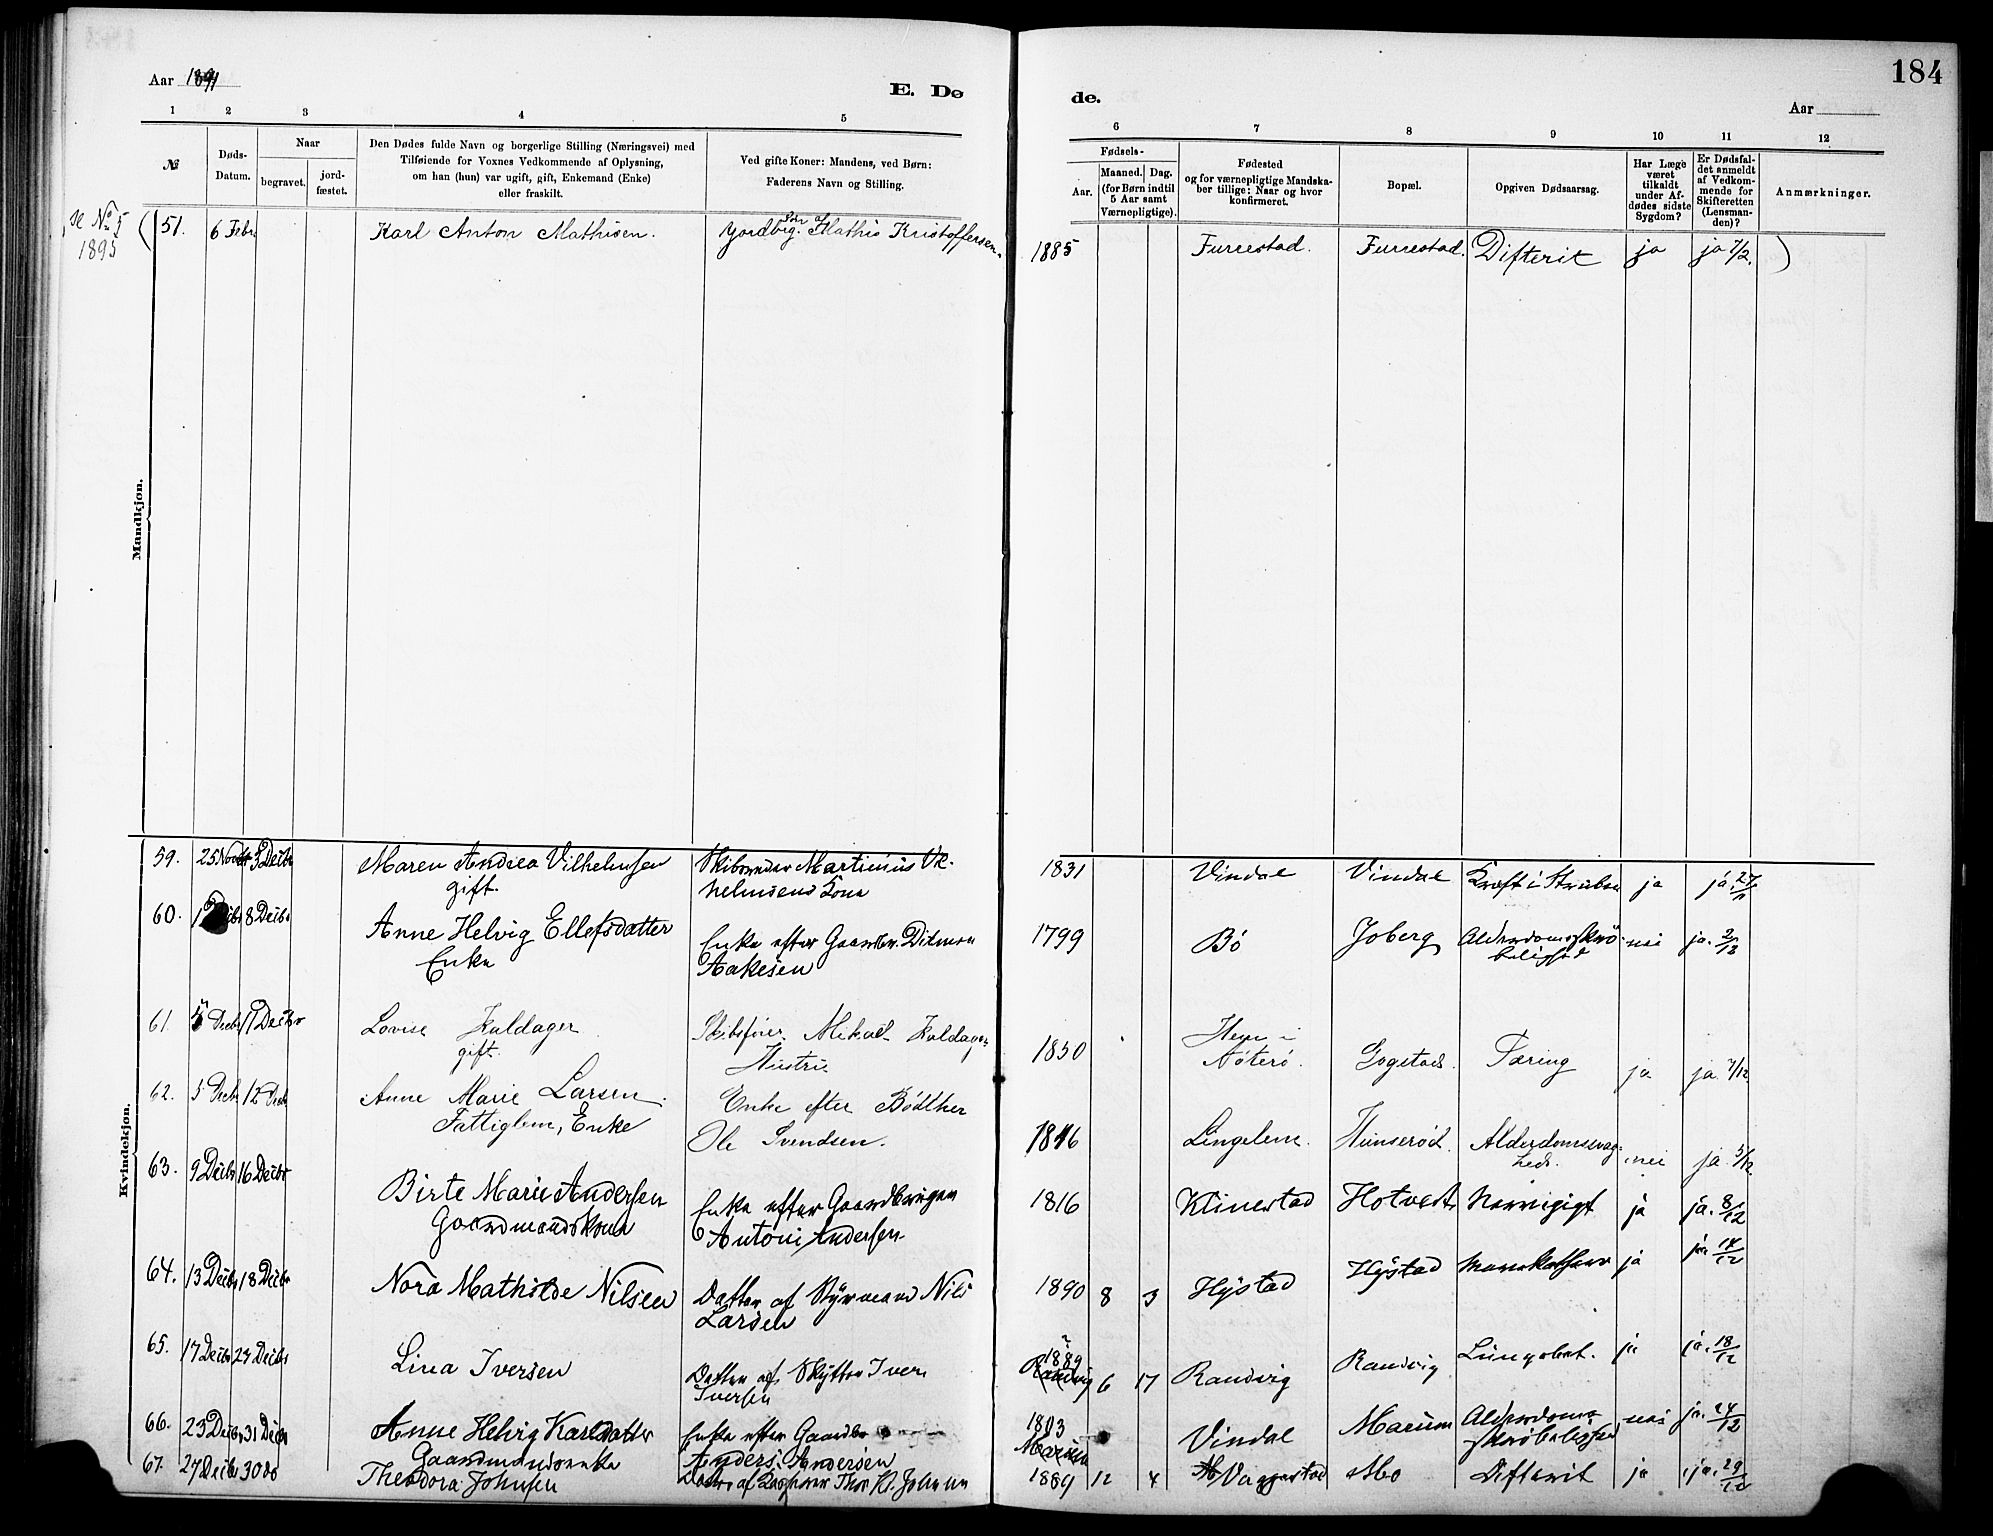 184
Aar 1891
E. Dø
de.
Aar
1 2 3 4 5
6 7 8 9 10 11 12
№
Døds-
Datum.
Naar
begravet.
jord-
fæstet.
Den Dødes fulde Navn og borgerlige Stilling (Næringsvei) med
Tilføiende for Voxnes Vedkommende af Oplysning,
om han (hun) var ugift, gift, Enkemand (Enke)
eller fraskilt.
Ved gifte Koner: Mandens, ved Børn:
Faderens Navn og Stilling.
Fødsels-
Aar.
Maaned. Dag.
(for Børn indtil
5 Aar samt
Værnepligtige).
Fødested
og for værnepligtige Mandska-
ber tillige: Naar og hvor
konfirmeret.
Bopæl.
Opgiven Dødsaarsag.
Har Læge
været
tilkaldt
under Af-
dødes sidste
Sygdom?
Er Dødsfal-
det anmeldt
af Vedkom-
mende for
Skifteretten
(Lensman-
den)?
Anmærkninger.
Mandkjøn.
Se No 5
1895
( 51. 6 Febr. Karl Anton Mathisen. Jordbrg. Søn af Mathis Kristoffersen. 1885 Furrestad. Furrestad. Difterit ja ja 7/2. )
Kvindekjøn.
59. 25 Novbr 3 Decbr Maren Andrea Vilhelmsen Martinius Vil- 1831 Vindal Vindal Kræft i Struben ja ja 27/11
gift. helmsens Kone
60. 8 Decbr Anne Helvig Ellefsdatter Enke efter Gaardbr. Ditman 1799 Bö Joberg Alderdomsskrö- nei ja. 2/12
Enke Aakesen belighed
61. 5 Decbr 11 Decbr Lovise Kaldager Skibsfører Mikael Kaldagers 1850 Hem i
gift. Hustru Nöterö Gogstad Tæring ja ja 7/12
62. 5 Decbr 12 Decbr Anne Marie Larsen. Enke efter Bødker
Fattiglem, Enke Ole Svendsen. 1816 Lingelem. Hunserød. Alderdomssvag- nei ja 5/12
hed.
63. 9 Decbr 16 Decbr Birte Marie Andersen Enke efter Gaardbrugen 1816 Klinestad Hotvedt ja ja. 8/12
Gaardmandskone Antoni Andersen
64. 13 Decbr 18 Decbr Nora Mathilde Nilsen Datter af Styrmand Nils 1890 8 3 Hystad Hystad ja ja. 14/12
Larsen
65. 17 Decbr 27 Decbr Lina Iversen Datter af Skytter Iver 1889 6 17 Randvig Randvig Lungebet. ja ja. 18/12
Iversen Randvig
66. 23 Decbr 31 Decbr Anne Helvig Karlsdatter Enke efter Gaardbr 1803 Vindal Marum Alderdoms- nei ja. 24/12
Gaardmandsenke Anders Andersen Marum skröbelighed
67. 27 Decbr 30 do Theodora Johnsen Datter af Thor Kr. Johnsen 1889 12 4 Vaggestad Mo Difterit ja ja. 29/12